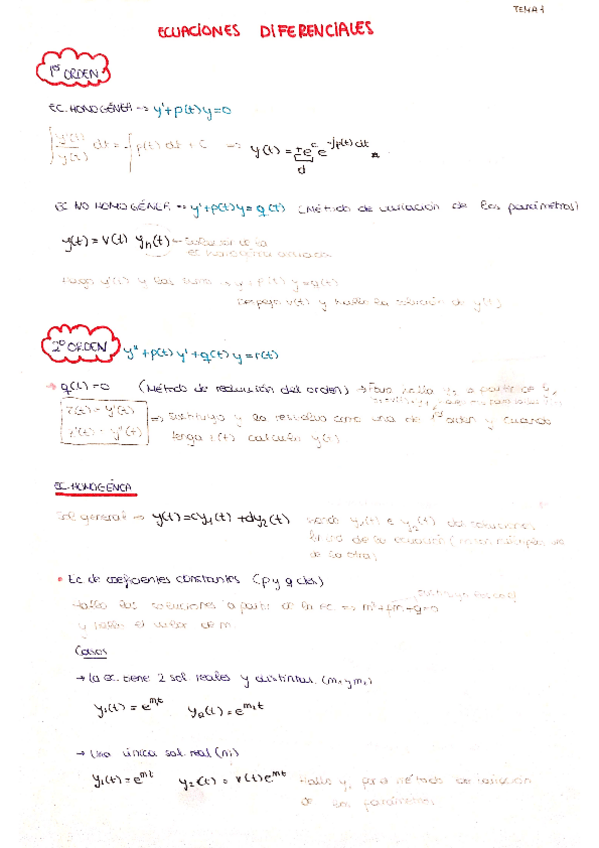 TEMA 3
ECUACIONES DIFERENCIALES
1er ORDEN
EC. HOMOGÉNEA → y'+p(t)y=0
∫ y'(t)/y(t) dt = -∫ p(t) dt + C → y(t) = ±e^c e^-∫p(t)dt
d
EC NO HOMOGÉNEA → y'+p(t)y=q(t) (Método de variación de los parámetros)
y(t) = v(t) yh(t) → solución de la
ec homogénea asociada
Hago y'(t) y las y'+p(t)y=q(t)
Despejo v(t) y hallo la solución de y(t)
2º ORDEN y''+p(t)y'+q(t)y=r(t)
→ q(t)=0 (Método de reducción del orden) → Para hallo y2 a partir de y1
z(t) = y'(t)
z'(t) = y''(t) ⇒ Sustituyo y la resuelvo como una de 1er orden y cuando
tenga z(t) calculo y(t)
EC. HOMOGÉNEA
Sol general → y(t)=cy1(t)+dy2(t) siendo y1(t) e y2(t) dos soluciones
de la ecuación (no son múltiplos una
de la otra)
• Ec de coeficientes constantes (p y q ctes)
Hallo las soluciones a partir de la ec → m²+pm+q=0
y hallo el valor de m.
Casos
→ La ec. tiene 2 sol reales y distintas (m1 y m2)
y1(t) = e^m1t y2(t) = e^m2t
→ Una única sol. real (m1)
y1(t)=e^mt y2(t) = v(t)e^mt Hallo y2 por método de variación
de los parámetros